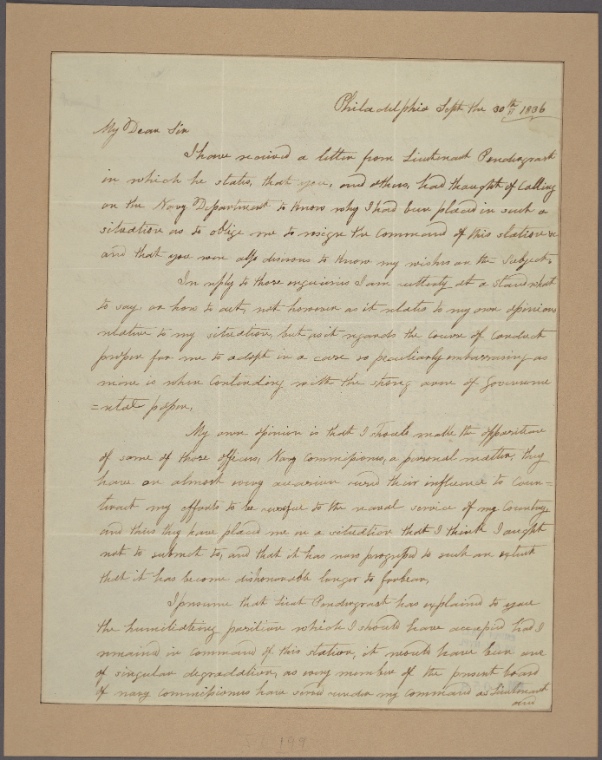 Philadelphia Sept the 30th 1836
My Dear Sir
I have recived a letter from Lieutenant Pendergrast
in which he states, that you, and others, had thought of Calling
on the Navy Department to Know why I had been placed in such a
situation as to oblige me to resign the Command of this station
and that you were also desirous to Know my wishes on the subject.
In reply to those enquiries I am entirely at a stand what
to say or how to act, not however as it relates to my own opinions
relative to my situation, but as it regards the course of conduct
proper for me to adopt in a case so peculiarly embarrassing as
mine is when Contending with the strong arm of Governme
=ntal power.
My own opinion is that I should make the opposition
of some of those officers, Navy Commissioners, a personal matter, they
have on almost every occasion used their influence to Coun=
teract my efforts to be useful to the naval service of my Country
and thus they have placed me in a situation that I think I ought
not to submit to, and that it has now progressed to such an extent
that it has become dishonorable longer to forbear.
I presume that Lieut Pendergrast has explained to you
the humiliating position which I should have occupied had I
remained in Command of this station, it would have been one
of singular degradation, as every member of the present board
of navy Commissioners have served under my Command as Lieutenant
199